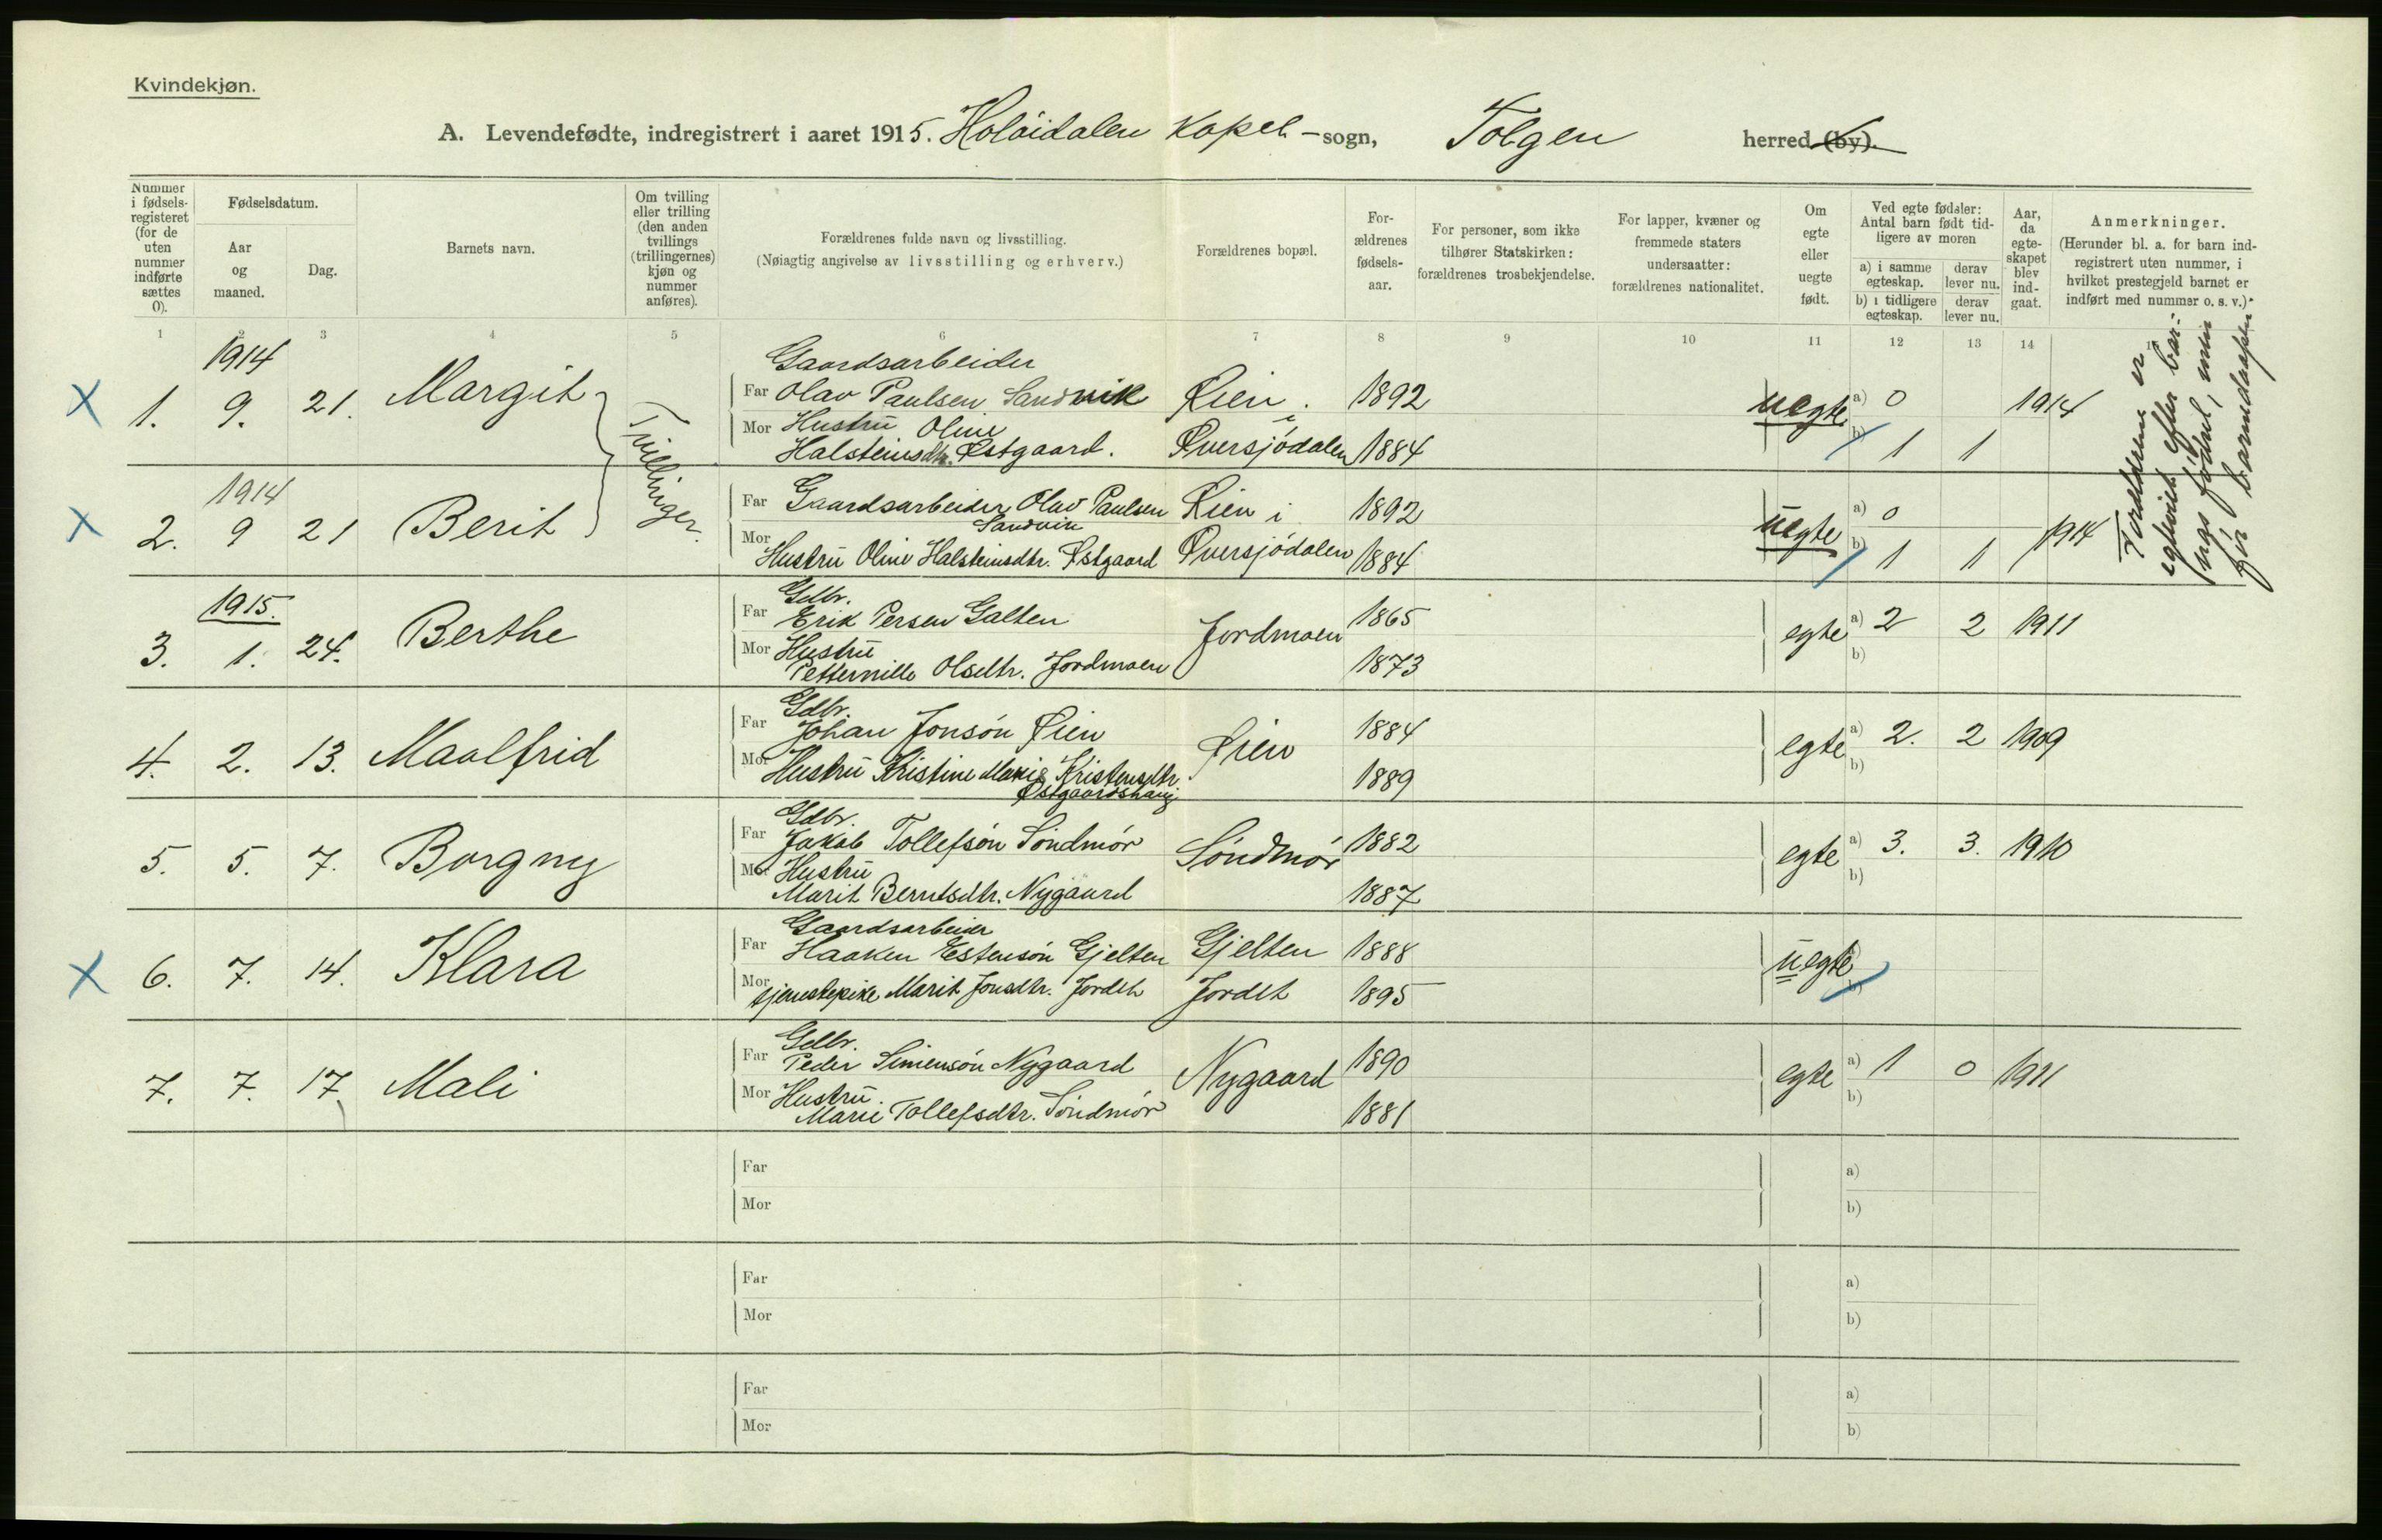 Kvindekjøn.
A. Levendefødte, indregistrert i aaret 1915. Holøidalen kapel - sogn, Tolgen herred (by).
Nummer i fødselsregisteret (for de uten nummer indførte sættes 0).
Fødselsdatum.
Aar og maaned.
Dag.
Barnets navn.
Om tvilling eller trilling (den anden tvillings (trillingernes) kjøn og nummer anføres).
Forældrenes fulde navn og livsstilling.
(Nøiagtig angivelse av livsstilling og erhverv.)
Forældrenes bopæl.
Forældrenes fødselsaar.
For personer, som ikke tilhører Statskirken: forældrenes trosbekjendelse.
For lapper, kvæner og fremmede staters undersaatter: forældrenes nationalitet.
Om egte eller uegte født.
Ved egte fødsler: Antal barn født tidligere av moren
a) i samme egteskap. derav lever nu.
b) i tidligere egteskap. derav lever nu.
Aar, da egteskapet blev indgaat.
Anmerkninger.
(Herunder bl. a. for barn indregistrert uten nummer, i hvilket prestegjeld barnet er indført med nummer o. s. v.).
1 2 3 4 5 6 7 8 9 10 11 12 13 14
1914 Gaardsarbeider
X 1. 9. 21. Margit Far Olav Paulsen Sandvik Øien i 1892 uegte a) 0 1914
Mor Hustru Oline
Halsteinsdtr. Østgaard. Øversjødalen 1884 b) 1 1
Tvillinger.
1914
X 2. 9 21 Berit Far Gaardsarbeider Olav Paulsen Sandvik Øien i 1892 uegte a) 0 1914
Mor Hustru Oline Halsteinsdtr. Østgaard Øversjødalen 1884 b) 1 1
Forældrene er
egteviet efter bar-
nets fødsel, men
før barnedaapen
1915. Gdbr.
3. 1. 24. Berthe Far Erik Persen Galten Jordmoen 1865 egte a) 2 2 1911
Mor Hustru
Petternille Olsdtr. Jordmoen 1873 b)
Gdbr.
4. 2. 13. Maalfrid Far Johan Jonsøn Øien Øien 1884 egte a) 2. 2 1909
Mor Hustru Kristine Marie Kristensdtr. 1889 b)
Østgaardshaug
Gdbr.
5. 5. 7. Borgny Far Jakob Tollefsøn Søndmør Søndmør 1882 egte a) 3. 3. 1910
Mor Hustru
Marit Berntsdtr. Nygaard 1887 b)
Gaardsarbeider
X 6. 7. 14. Klara Far Haaken Estensøn Gjelten Gjelten 1888 uegte
Mor tjenestepike Marit Jonsdtr. Jordet Jordet 1895 b)
Gdbr.
7. 7. 17. Mali Far Peder Simensøn Nygaard Nygaard 1890 egte a) 1 0 1911
Mor Hustru
Marie Tollefsdtr. Søndmør 1881 b)
Far a)
Mor b)
Far a)
Mor b)
Far a)
Mor b)